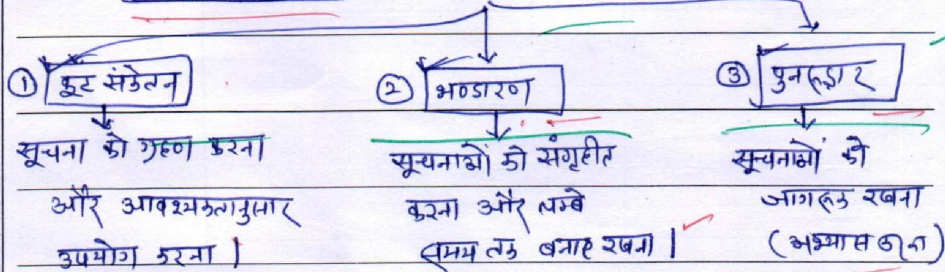 ① कूट संकेतन
सूचना को ग्रहण करना
और आवश्यकतानुसार
उपयोग करना |
② भण्डारण
सूचनाओं को संगृहीत
करना और लम्बे
समय तक बनाए रखना |
③ पुनरूद्धार
सूचनाओं को
जागरूक रखना
(अभ्यास करना)